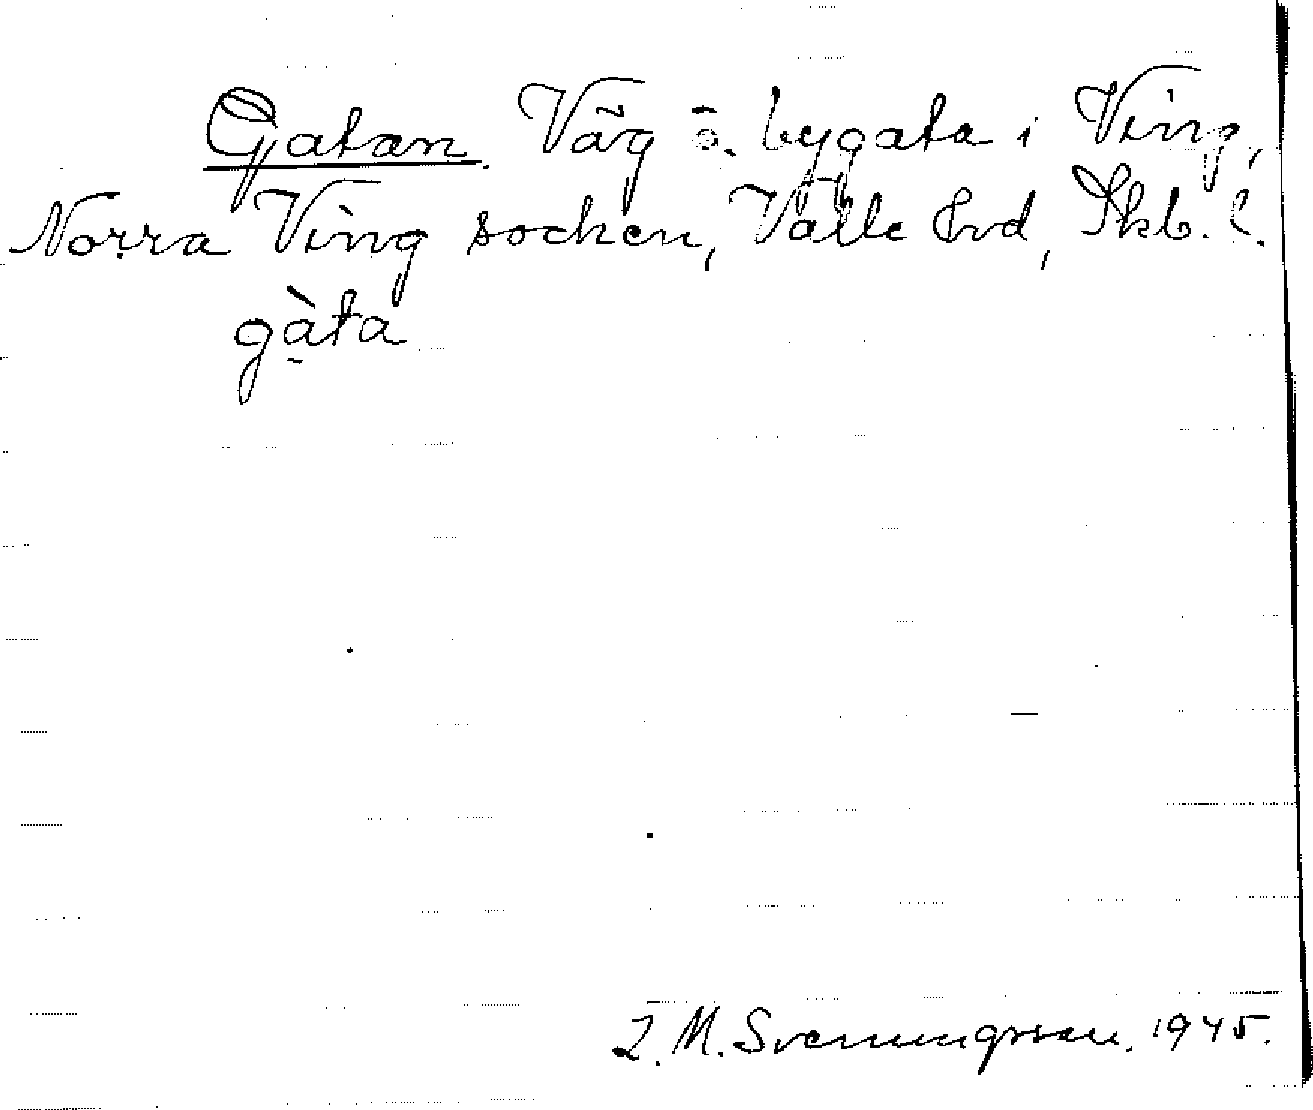 Gatan. Väg o. bygata i Ving,
Norra Ving socken, Valle hd, Skb. l.
gàta
I. M. Svenungsson. 1945.